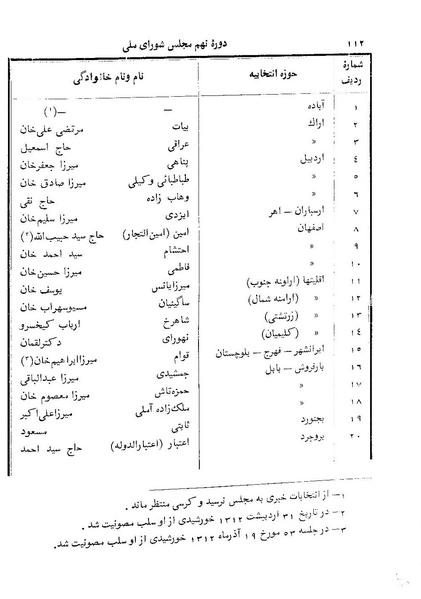 ۱۱۲
دورهٔ نهم مجلس شورای ملی
شماره ردیف حوزه انتخابیه نام و نام خانوادگی
۱ آباده – –(۱)
۲ اراك بیات مرتضی علی‌خان
۳ « عراقی حاج اسمعیل
۴ اردبیل پناهی میرزا جعفرخان
۵ « طباطبائی وکیلی میرزا صادق خان
۶ « وهاب زاده حاج نقی
۷ ارسباران – اهر ایزدی میرزا سلیم‌خان
۸ اصفهان امین (امین‌التجار) حاج سید حبیب‌الله(۲)
۹ « احتشام سید احمد خان
۱۰ « فاطمی میرزا حسین‌خان
۱۱ اقلیتها (ارامنه جنوب) میرزایانس یوسف خان
۱۲ « (ارامنه شمال) ساگینیان مسیوسهراب خان
۱۳ « (زرتشتی) شاهرخ ارباب کیخسرو
۱۴ « (کلیمیان) نهورای دکترلقمان
۱۵ ایرانشهر – فهرج – بلوچستان قوام میرزاابراهیم‌خان(۳)
۱۶ بارفروش – بابل جمشیدی میرزا عبدالباقی
۱۷ « حمزه‌تاش میرزا معصوم خان
۱۸ « ملك‌زاده آملی میرزاعلی‌اکبر
۱۹ بجنورد ثابتی مسعود
۲۰ بروجرد اعتبار (اعتبارالدوله) حاج سید احمد
۱– از انتخابات خبری به مجلس نرسید و کرسی منتظر ماند .
۲– در تاریخ ۳۱ اردیبهشت ۱۳۱۲ خورشیدی از او سلب مصونیت شد .
۳– در جلسه ۵۳ مورخ ۱۹ آذرماه ۱۳۱۲ خورشیدی از او سلب مصونیت شد.